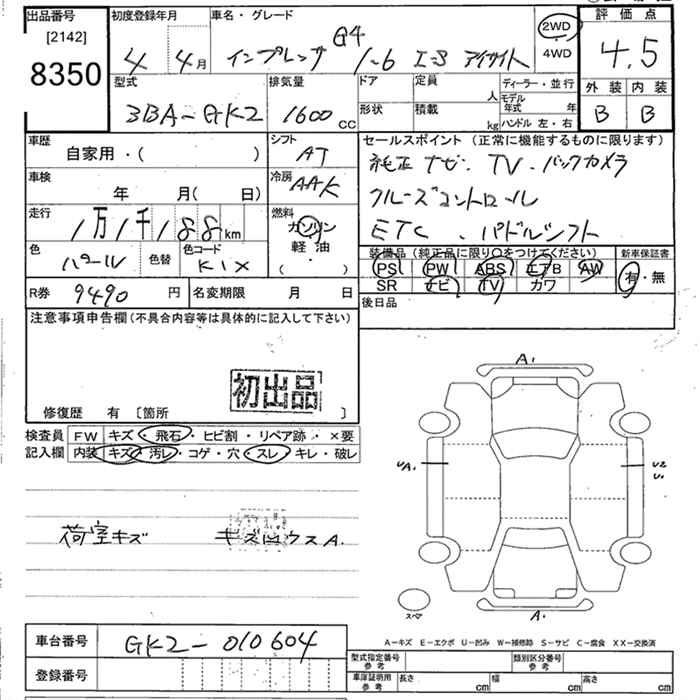 出品番号 初度登録年月 車名・グレード 評価点
[2142]
8350
4 4月 インプレッサ G4 1-6 I-S アイサイト 2WD 4.5
4WD
型式 排気量 ドア 定員 人 ディーラー・並行 外装 内装
3BA-GK2 1600cc 形状 積載 kg モデル年式 年 B B
ハンドル 左・右
車歴 シフト セールスポイント (正常に機能するものに限ります)
自家用・( ) AT 純正ナビ. TV. バックカメラ
車検 冷房
年 月( 日) AAK クルーズコントロール
走行 燃料
1万1千188km ガソリン ETC . パドルシフト
軽油
・( )
色 色替 色コード 装備品(純正品に限り○をつけてください) 新車保証書
パール KIX PS PW ABS エアB AW 有・無
SR ナビ TV カワ
R券 9490円 名変期限 月 日 後日品
注意事項申告欄(不具合内容等は具体的に記入して下さい)
初出品
修復歴 有 〔箇所 〕
検査員 FW キズ・飛石・ヒビ割・リペア跡・×要
記入欄 内装 キズ・汚レ・コゲ・穴・スレ・キレ・破レ
A1
UA1 U2
U1
荷室キズ
A1
スペア
A-キズ E-エクボ U-凹み W-補修跡 S-サビ C-腐食 XX-交換済
車台番号 GK2-010604
型式指定番号 参考 類別区分番号 参考
登録番号 車庫証明用 参考 長さ cm 幅 cm 高さ cm